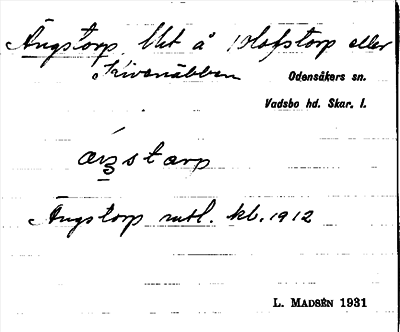 Ängstorp, lht å Olofstorp eller
Skivenäbben
Odensåkers sn.
Vadsbo hd. Skar. l.
æŋstærp
Ängstorp mtl. kb. 1912
L. MADSÉN 1931